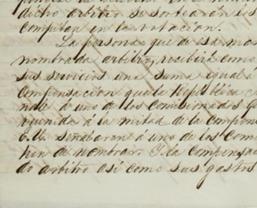 dicho arbitro se sortearán los
Compitan en la votacion.
La persona que de esa mos
nombrada arbitro, recibirá como
sus servicios una suma igual a
Compensacion que la República
nale á uno de los Comisionados
reunidos á la mitad de la Compens
E.U. señalaren á uno de los Com
han de nombrar. I la Compensac
do arbitro así como sus gastos